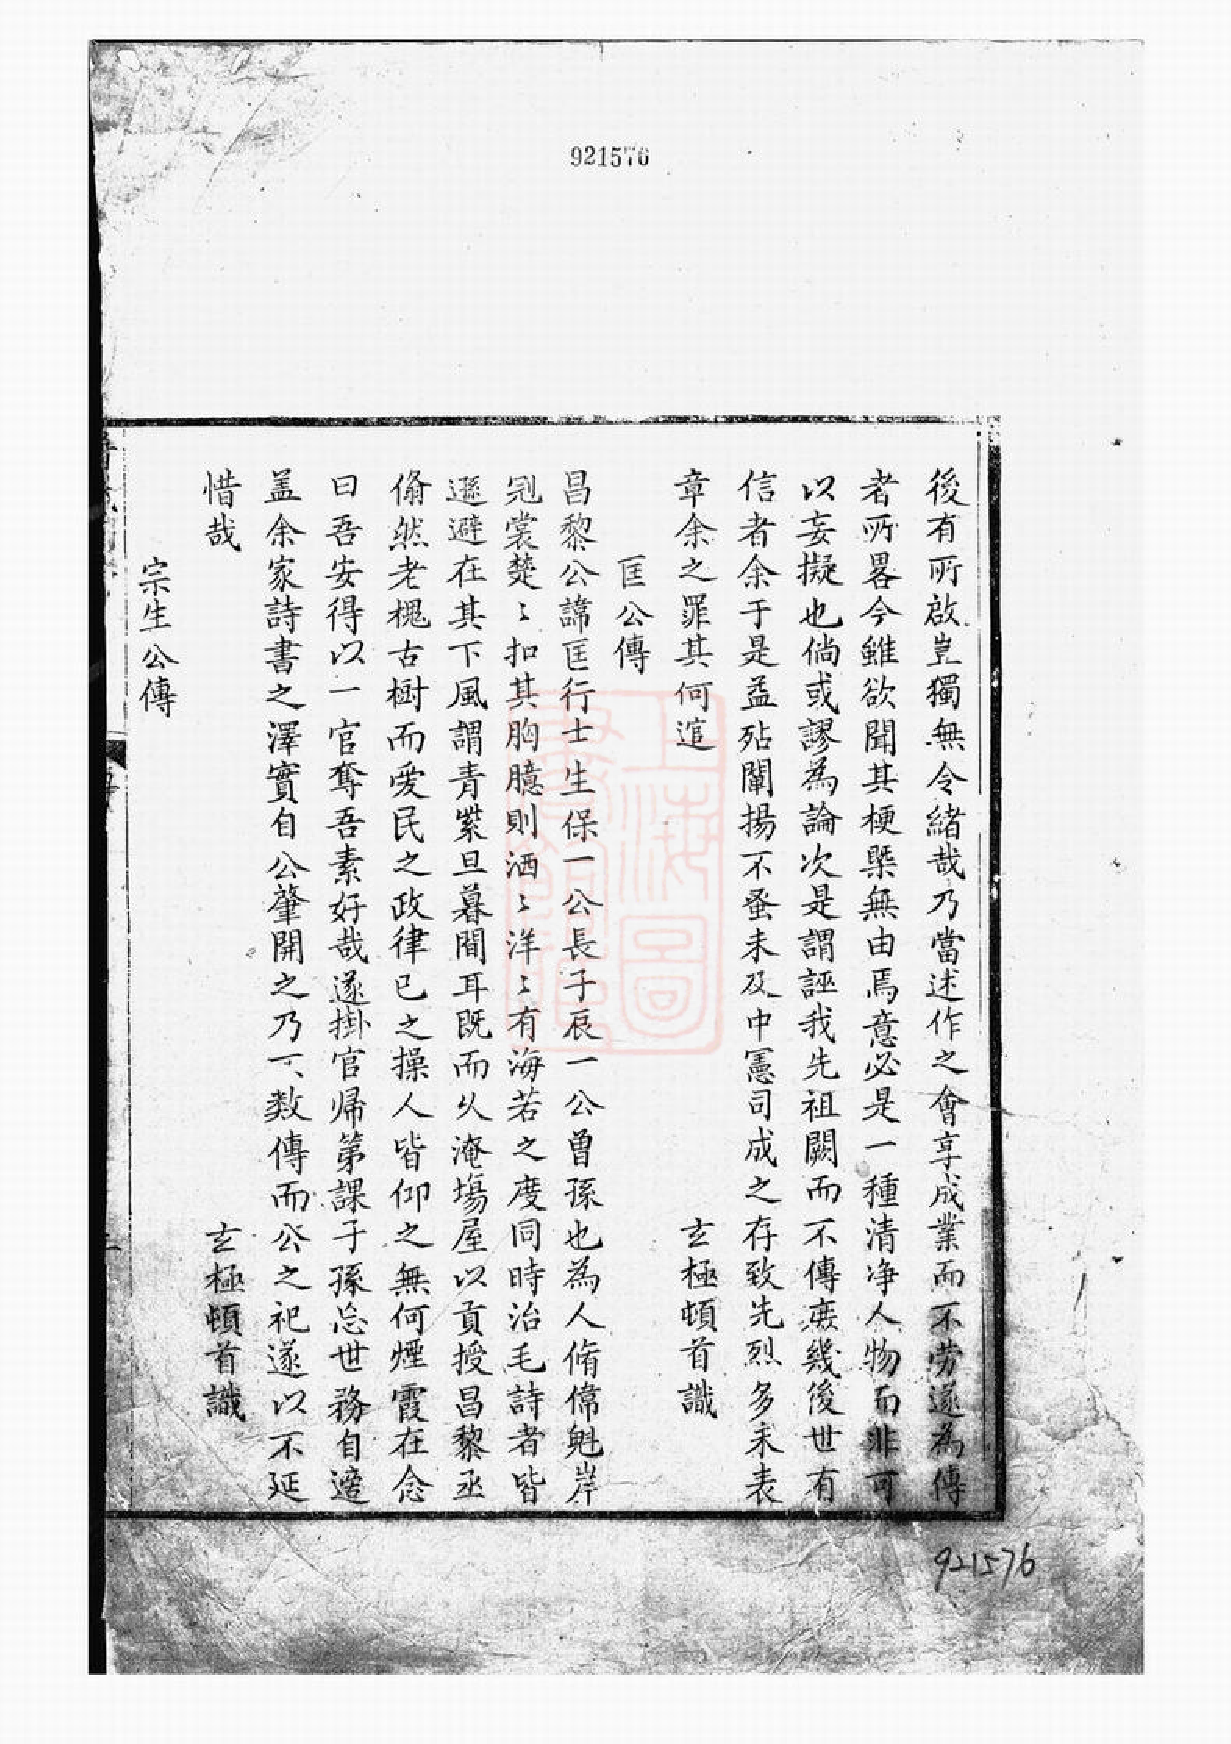 921576
後有所啟豈獨無令緒哉乃當述作之會享成業而不勞遂為傳
者所畧今雖欲聞其梗槩無由焉意必是一種清净人物而非可
以妄擬也倘或謬為論次是謂誣我先祖闕而不傳庻幾後世有
信者余于是益殆闡揚不蚤未及中憲司成之存致先烈多未表
章余之罪其何逭 玄極頓首識
匡公傳
昌黎公諱匡行士生保一公長子辰一公曽孫也為人脩偉魁岸
冠裳楚〻扣其胸臆則洒〻洋〻有海若之度同時治毛詩者皆
遜避在其下風謂青紫旦暮間耳既而乆淹塲屋以貢授昌黎丞
翛然老槐古樹而愛民之政律已之操人皆仰之無何煙霞在念
曰吾安得以一官奪吾素好哉遂掛官帰第課子孫忘世務自適
盖余家詩書之澤實自公肇開之乃不數傳而公之祀遂以不延
惜哉 玄極頓首識
宗生公傳
上海圖書館藏
921576